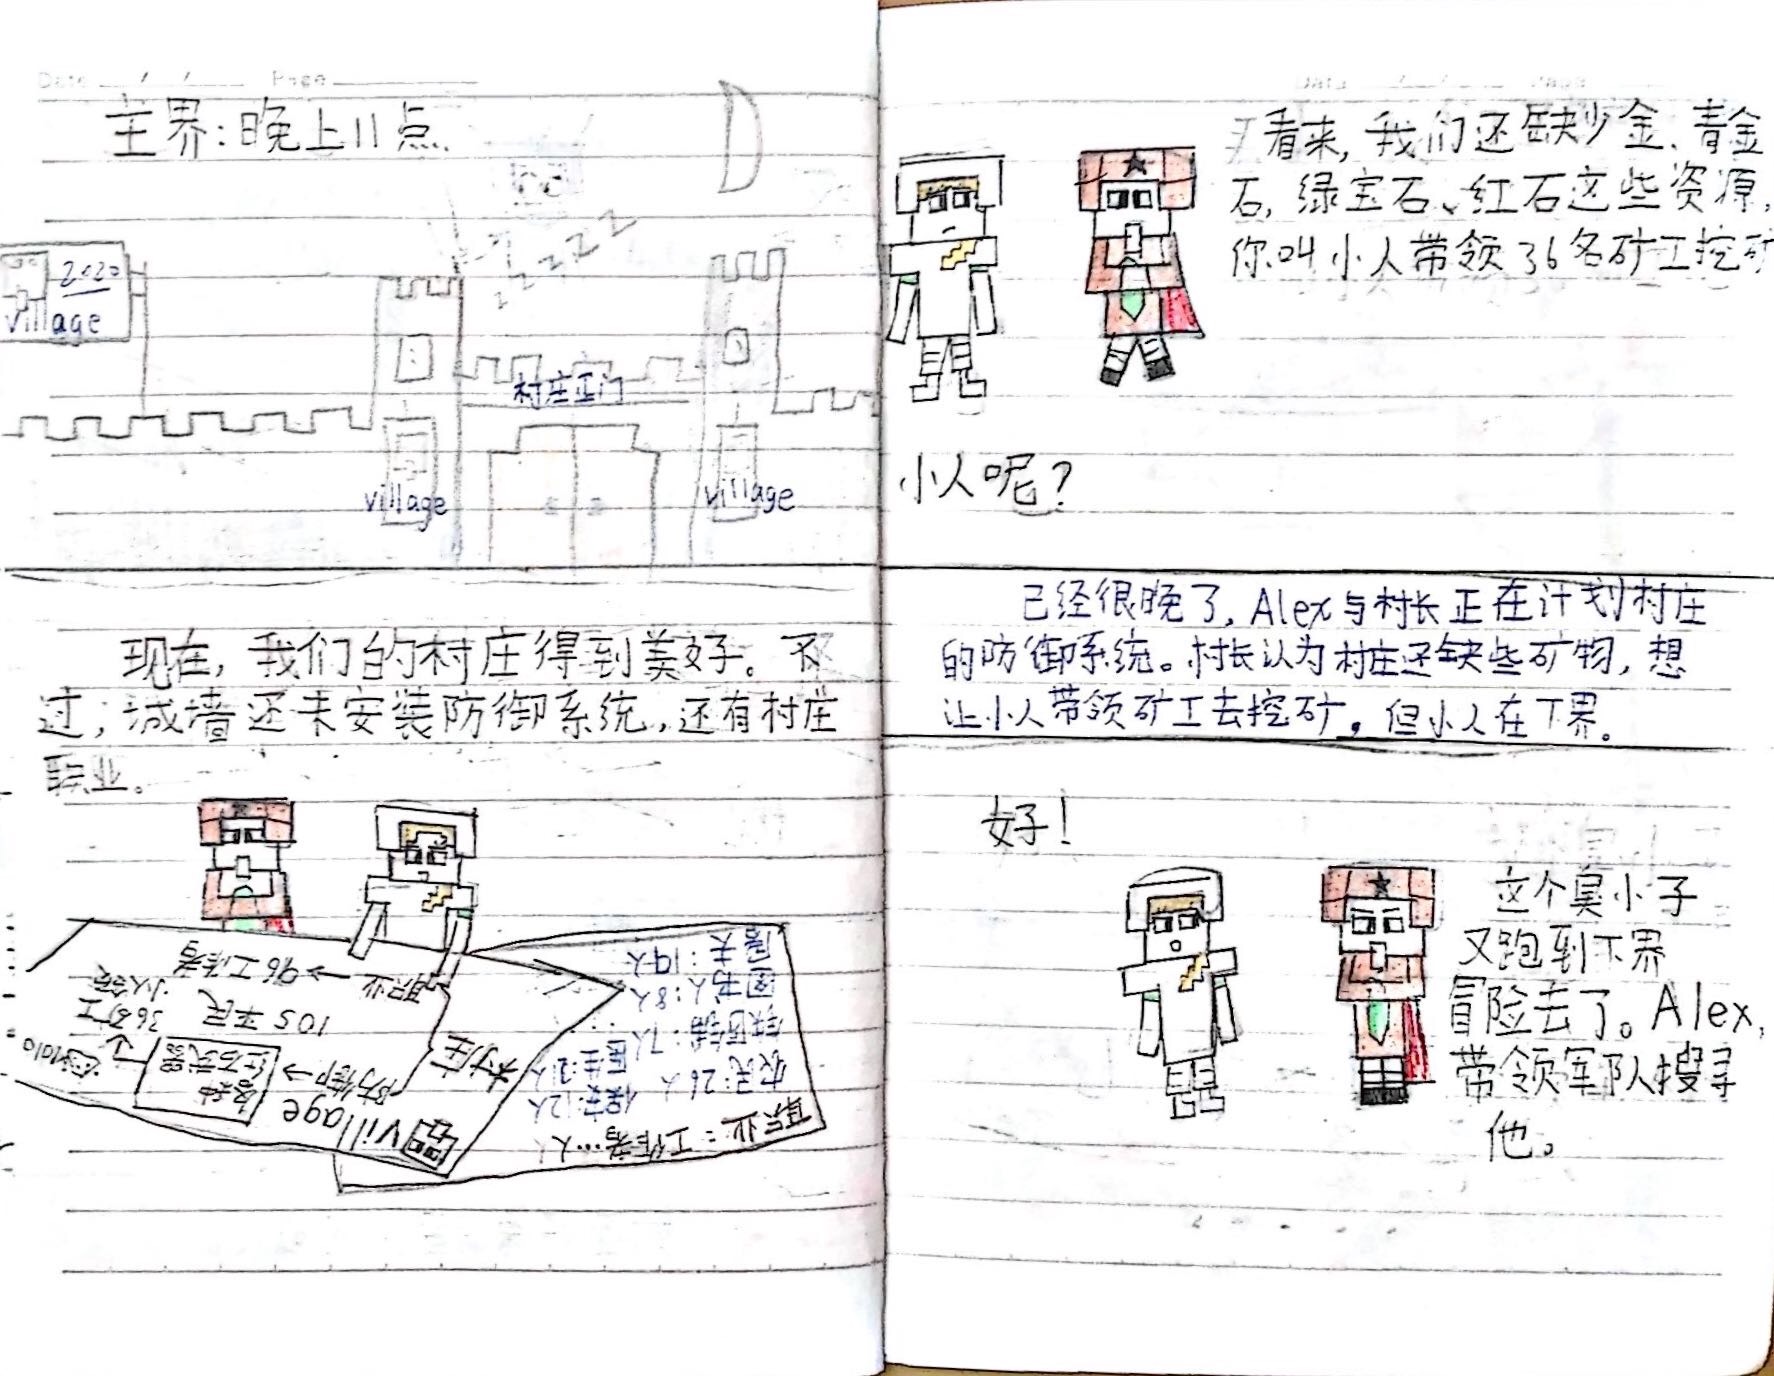 Date / / Page
主界:晚上11点
zzzzz
2020
village
村庄正门
village
village
现在,我们的村庄得到美好。不
过,城墙还未安装防御系统,还有村庄
职业。
村庄
village
职业→96工作者
防御→
各种
红石武器
105平民
36矿工
职业:工作者…人
农民:26人
保安:12人
7人
医生:21人
图书人:8人
屠夫:19人
Date / / Page
看来,我们还缺少金、青金
石,绿宝石、红石这些资源,
你叫小人带领36名矿工挖矿
小人呢?
已经很晚了,Alex与村长正在计划村庄
的防御系统。村长认为村庄还缺些矿物,想
让小人带领矿工去挖矿。但小人在下界。
好!
这个臭小子
又跑到下界
冒险去了。Alex,
带领军队搜寻
他。